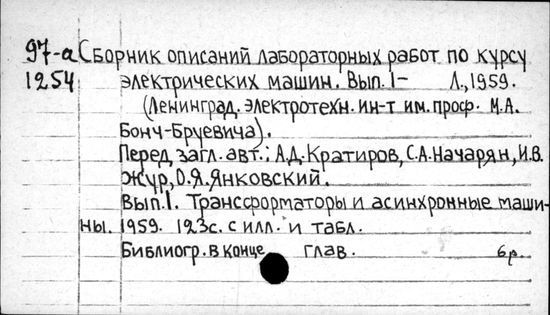 97-а Сборник описаний лабораторных работ по курсу
1254 электрических машин. Вып.1- Л., 1959.
(Ленинград. электротехн. ин-т им. проф. М.А.
Бонч-Бруевича).
Перед загл. авт.: А.Д. Кратиров, С.А. Начарян, И.В.
Жур, О.Я. Янковский.
Вып.1. Трансформаторы и асинхронные маши-
ны. 1959. 123с. с илл. и табл.
Библиогр. в конце глав. 6р.